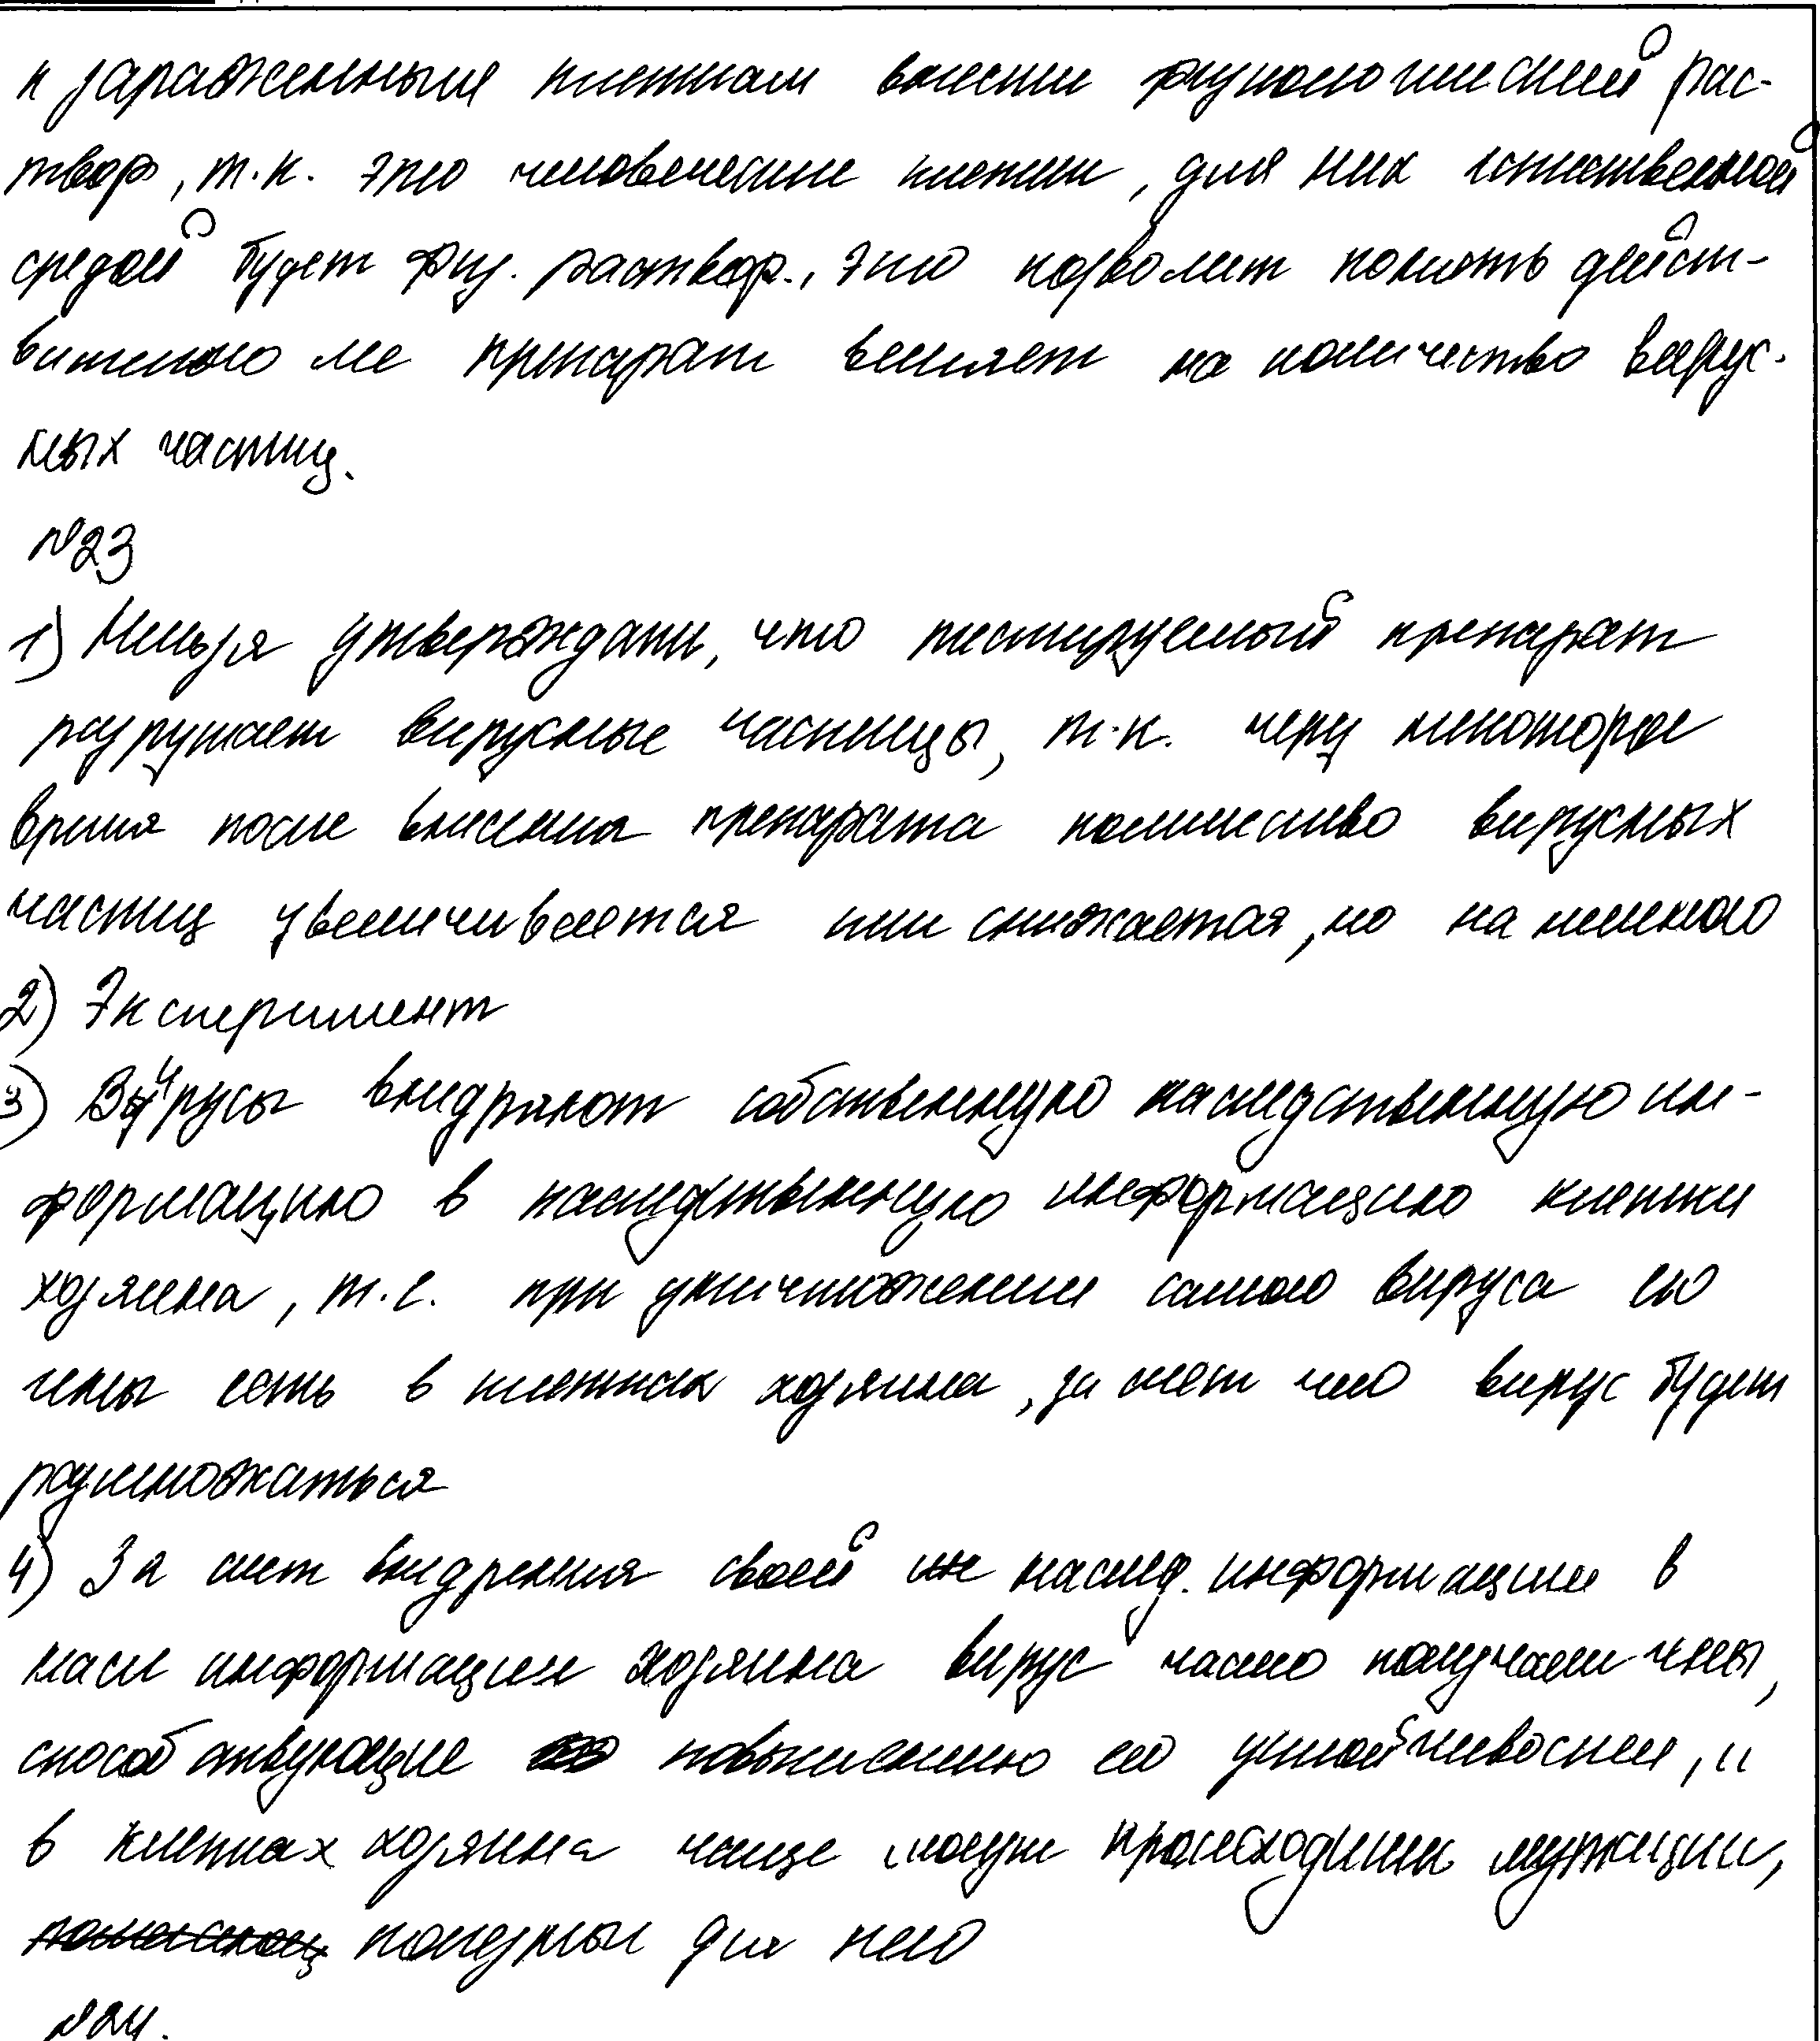 к зараженным клеткам внести физиологический рас-
твор, т.к. это человеческие клетки, для них естественной
средой будет физ. раствор., это позволит понять дейст-
вительно ли препарат влияет на количество вирус-
ных частиц.
№23
1) Нельзя утверждать, что тестируемый препарат
разрушает вирусные частицы, т.к. через некоторое
время после внесения препарата количество вирусных
частиц увеличивается или снижается, но на немного
2) Эксперимент
3) Вирусы внедряют собственную наследственную ин-
формацию в наследственную информацию клетки
хозяина, т.е. при уничтожении самого вируса его
гены есть в клетках хозяина, за счет чего вирус будет
размножаться
4) За счет внедрения своей наслед. информации в
насл информации хозяина вирус часто получает гены,
способствующие повышению его устойчивости, и
в клетках хозяина чаще могут происходить мутации,
полезные для него
№24.